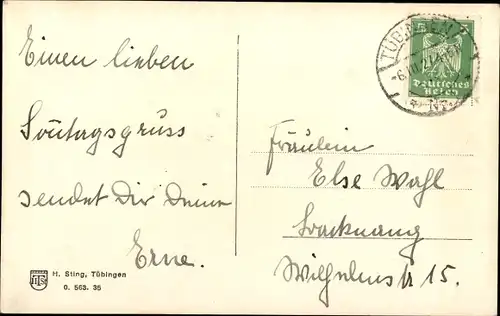 Einen lieben
Sonntagsgruss
sendet Dir Deine
Erne.
H. Sting, Tübingen
0. 563. 35
TÜBINGEN
5
Deutsches
Reich
Fräulein
Else Wahl
Backnang
Wilhelmstr 15.